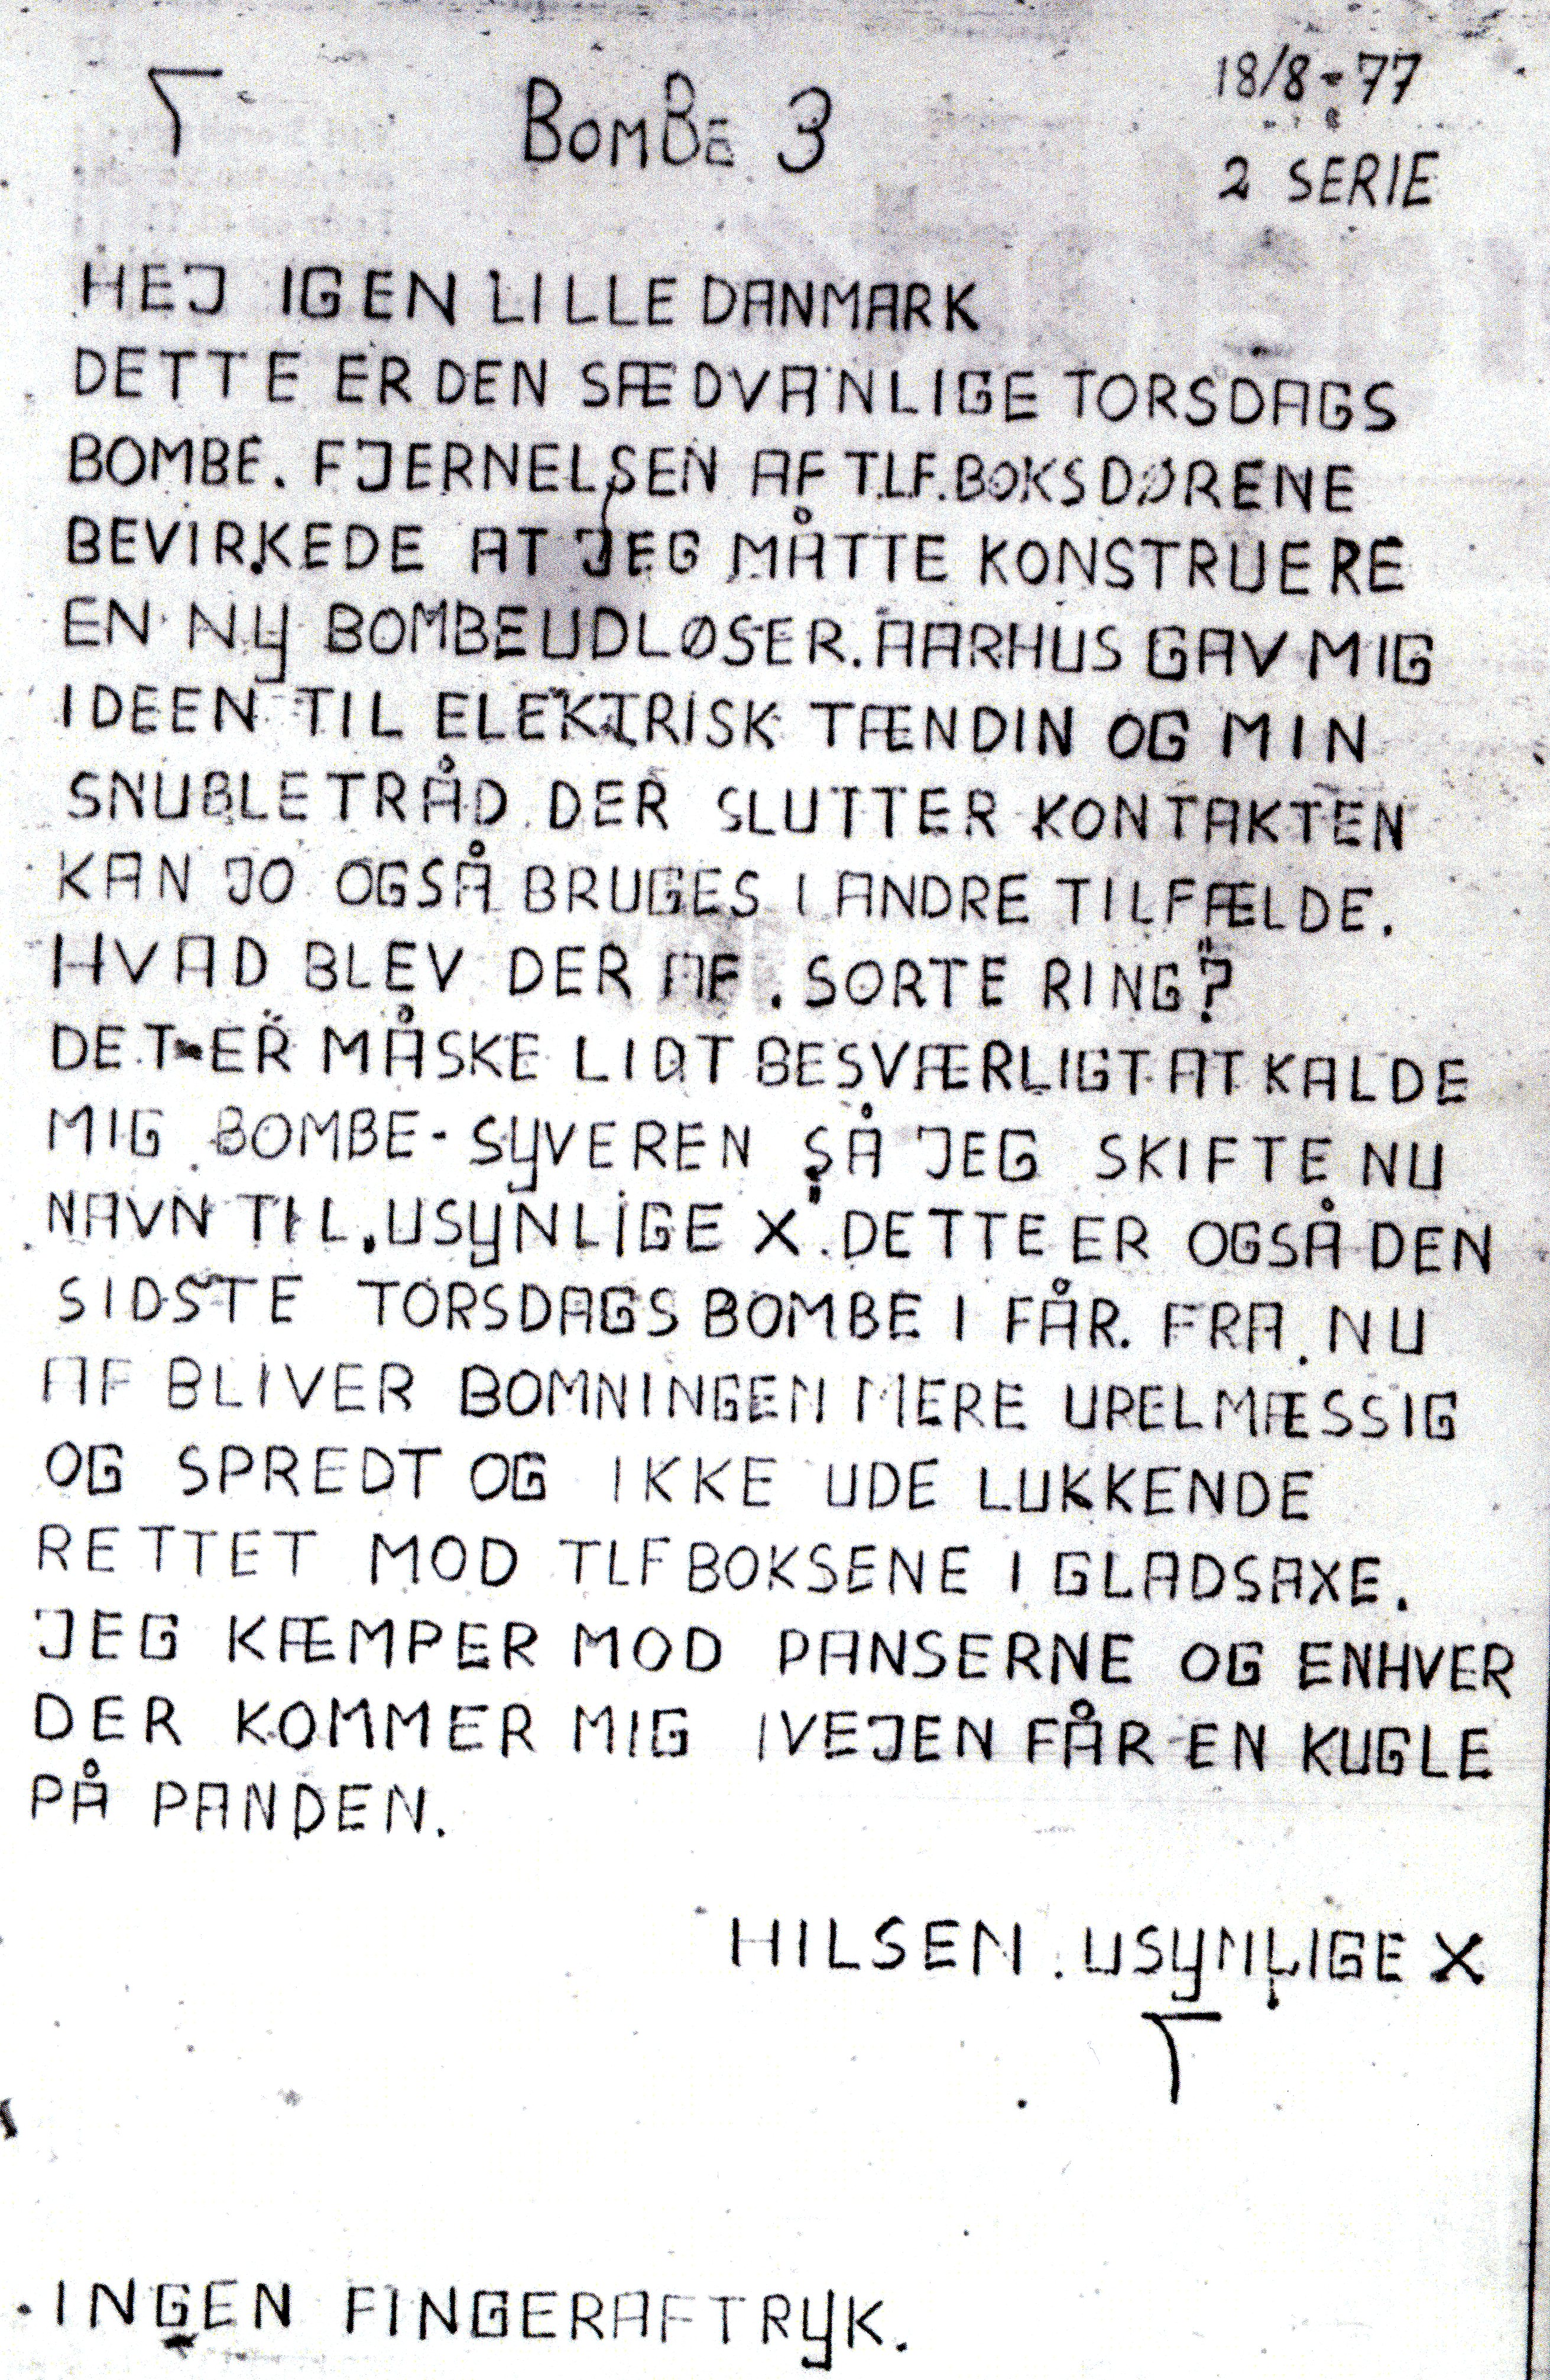 Bombe 3
18/8-77
2 SERIE
HEJ IGEN LILLE DANMARK
DETTE ER DEN SÆDVANLIGE TORSDAGS
BOMBE. FJERNELSEN AF TLF.BOKSDØRENE
BEVIRKEDE AT JEG MÅTTE KONSTRUERE
EN NY BOMBEUDLØSER. AARHUS GAV MIG
IDEEN TIL ELEKTRISK TÆNDIN OG MIN
SNUBLETRÅD DER SLUTTER KONTAKTEN
KAN JO OGSÅ BRUGES I ANDRE TILFÆLDE.
HVAD BLEV DER AF „SORTE RING"?
DET ER MÅSKE LIDT BESVÆRLIGT AT KALDE
MIG BOMBE-SYVEREN SÅ JEG SKIFTE NU
NAVN TIL „USYNLIGE X". DETTE ER OGSÅ DEN
SIDSTE TORSDAGS BOMBE I FÅR. FRA NU
AF BLIVER BOMNINGEN MERE URELMÆSSIG
OG SPREDT OG IKKE UDE LUKKENDE
RETTET MOD TLFBOKSENE I GLADSAXE.
JEG KÆMPER MOD PANSERNE OG ENHVER
DER KOMMER MIG IVEJEN FÅR EN KUGLE
PÅ PANDEN.
HILSEN . USYNLIGE X
INGEN FINGERAFTRYK.